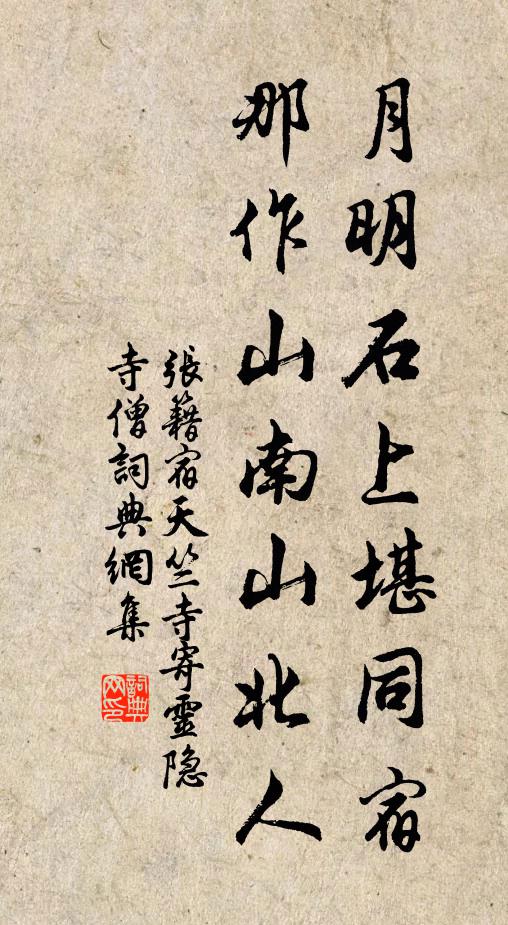 月明石上堪同宿
那作山南山北人
張籍宿天竺寺寄靈隐
寺僧詞典網集
詞典
网印